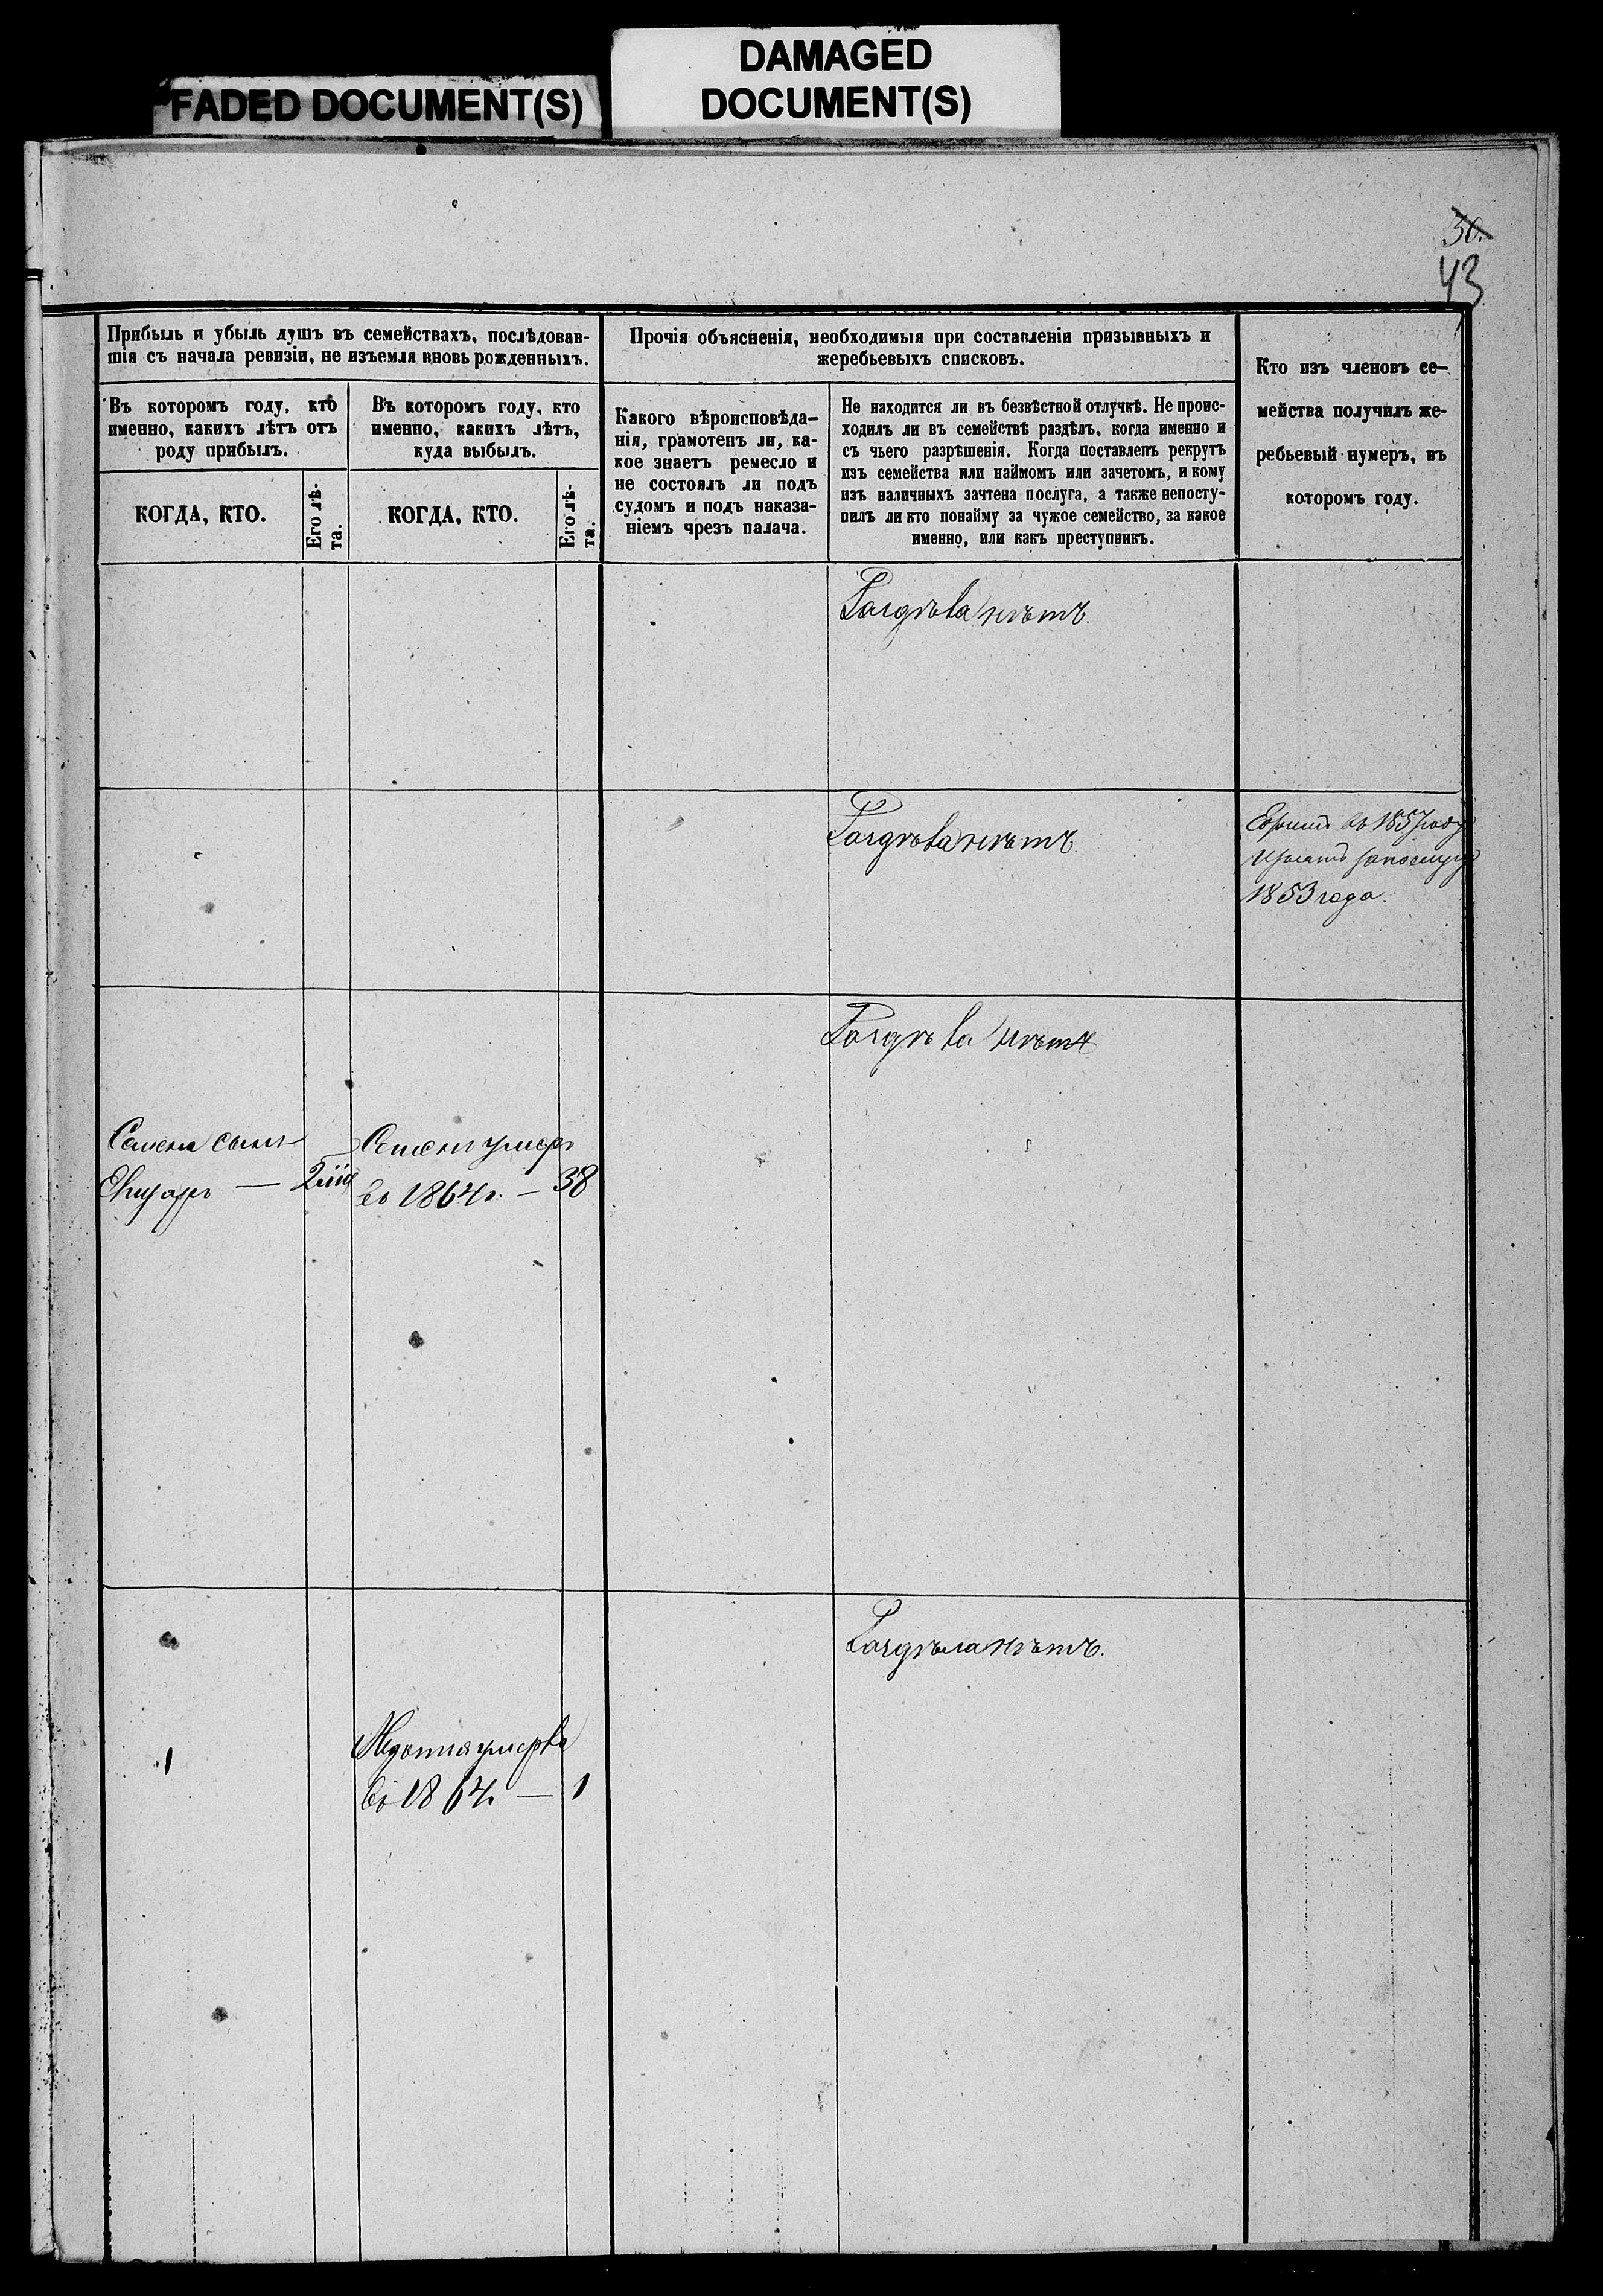 FADED DOCUMENT(S)
DAMAGED
DOCUMENT(S)
30.
43
Прибыль и убыль душъ въ семействахъ, послѣдовав-
шія съ начала ревизіи, не изъемля вновь рожденныхъ.
Прочія объясненія, необходимыя при составленіи призывныхъ и
жеребьевыхъ списковъ.
Кто изъ членовъ се-
мейства получилъ же-
ребьевый нумеръ, въ
которомъ году.
Въ которомъ году, кто
именно, какихъ лѣтъ отъ
роду прибылъ.
Въ которомъ году, кто
именно, какихъ лѣтъ,
куда выбылъ.
Какого вѣроисповѣда-
нія, грамотенъ ли, ка-
кое знаетъ ремесло и
не состоялъ ли подъ
судомъ и подъ наказа-
ніемъ чрезъ палача.
Не находится ли въ безвѣстной отлучкѣ. Не проис-
ходилъ ли въ семействѣ раздѣлъ, когда именно и
съ чьего разрѣшенія. Когда поставленъ рекрутъ
изъ семейства или наймомъ или зачетомъ, и кому
изъ наличныхъ зачтена послуга, а также непосту-
пилъ ли кто понайму за чужое семейство, за какое
именно, или какъ преступникъ.
КОГДА, КТО.
Его лѣ-
та.
КОГДА, КТО.
Его лѣ-
та.
Раздѣла нѣтъ.
Раздѣла нѣтъ
въ 1857 году
1853 года.
Раздѣла нѣтъ
Семена сынъ
2
умеръ
въ 1864 г. — 38
Раздѣла нѣтъ.
умерла
въ 1864 — 1
1